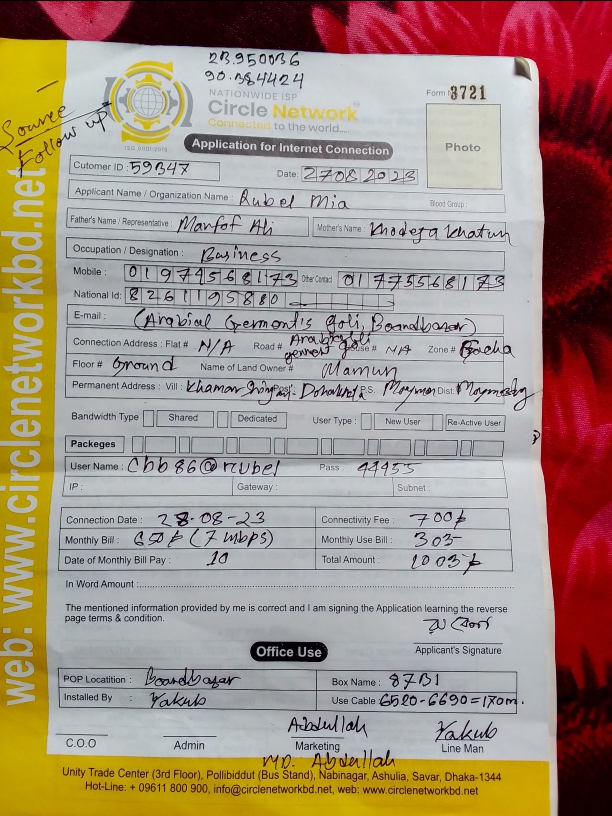 23.950036
90.384424
Source
Follow up
NATIONWIDE ISP
Circle Network
Connected to the world.....
ISO 9001:2015
Form 3721
Photo
Application for Internet Connection
Cutomer ID : 59347 Date: 27082023
Applicant Name / Organization Name : Rubel Mia Blood Group :
Father's Name / Representative : Ali Mother's Name : Khodeja Khatun
Occupation / Designation : Business
Mobile : 01974568173 Other Contact 01775568173
National Id: 8261195880
E-mail : (Arabial Germont's goli, Boardbazar)
Connection Address : Flat # N/A Road # goli # N/A Zone # Gacha
Floor # Ground Name of Land Owner # Mamun
Permanent Address : Vill : Khamar P.S. Dist:
Bandwidth Type Shared Dedicated User Type : New User Re-Active User
Packeges
User Name : Cbb86@rubel Pass : 44455
IP : Gateway : Subnet :
Connection Date : 28-08-23 Connectivity Fee : 700/-
Monthly Bill : 650/- (7 mbps) Monthly Use Bill : 303-
Date of Monthly Bill Pay : 10 Total Amount : 1003/-
In Word Amount :
The mentioned information provided by me is correct and I am signing the Application learning the reverse
page terms & condition.
রুবেল
Applicant's Signature
Office Use
POP Locatition : Boardbazar Box Name : 87B1
Installed By : Yakub Use Cable : 6520-6690=170m.
Abdullah Yakub
C.O.O Admin Marketing Line Man
MD. Abdullah
Unity Trade Center (3rd Floor), Pollibiddut (Bus Stand), Nabinagar, Ashulia, Savar, Dhaka-1344
Hot-Line: + 09611 800 900, info@circlenetworkbd.net, web: www.circlenetworkbd.net
web: www.circlenetworkbd.net